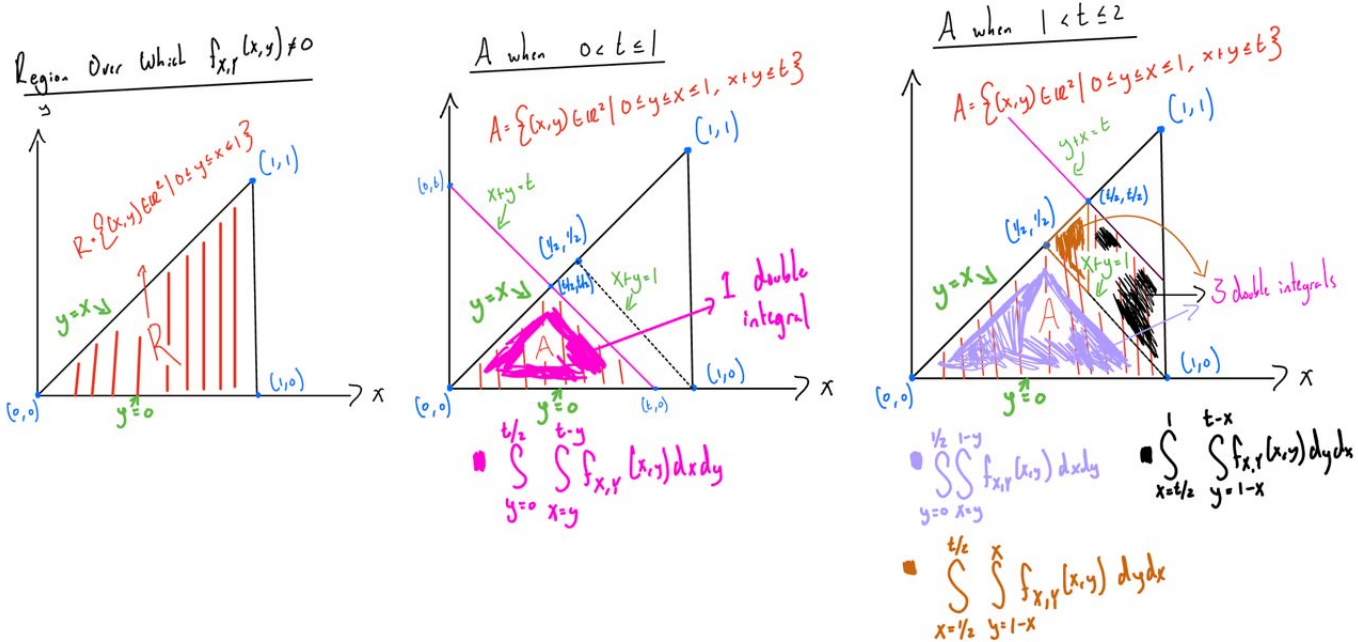 Region Over Which f_{X,Y}(x,y)≠0
y
R={(x,y)∈ℝ²|0≤y≤x≤1}
(1,1)
y=x
R
(0,0)
y=0
(1,0)
x
A when 0<t≤1
A={(x,y)∈ℝ²|0≤y≤x≤1, x+y≤t}
(1,1)
(0,t)
x+y=t
(1/2,1/2)
(t/2,t/2)
x+y=1
y=x
1 double
integral
A
(0,0)
y=0
(t,0)
(1,0)
x
∫_{y=0}^{t/2} ∫_{x=y}^{t-y} f_{X,Y}(x,y)dxdy
A when 1<t≤2
A={(x,y)∈ℝ²|0≤y≤x≤1, x+y≤t}
y+x=t
(1,1)
(t/2,t/2)
(1/2,1/2)
x+y=1
y=x
3 double integrals
A
(0,0)
y=0
(1,0)
x
∫_{y=0}^{1/2} ∫_{x=y}^{1-y} f_{X,Y}(x,y)dxdy
∫_{x=t/2}^{1} ∫_{y=1-x}^{t-x} f_{X,Y}(x,y)dydx
∫_{x=1/2}^{t/2} ∫_{y=1-x}^{x} f_{X,Y}(x,y) dydx